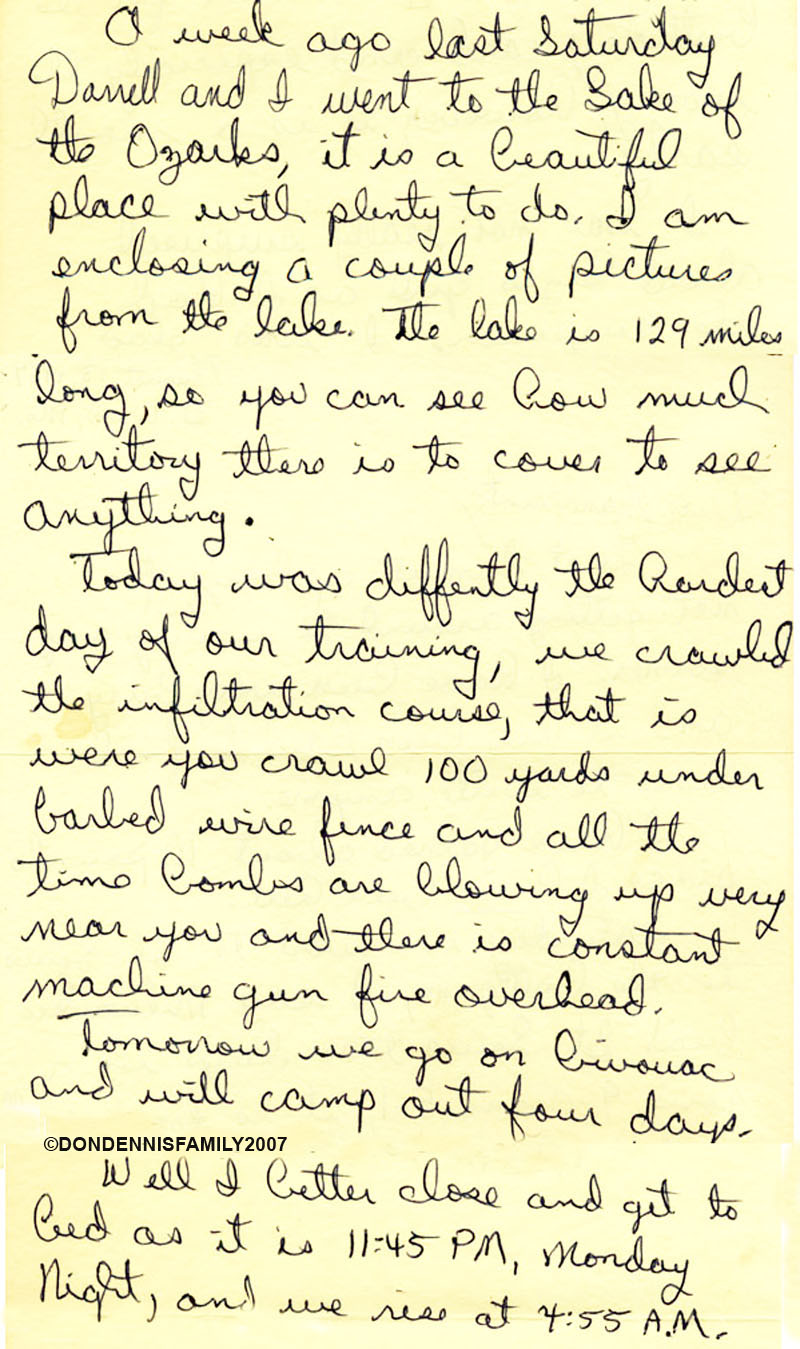 A week ago last Saturday
Darrell and I went to the Lake of
the Ozarks, it is a beautiful
place with plenty to do. I am
enclosing a couple of pictures
from the lake. The lake is 129 miles
long, so you can see how much
territory there is to cover to see
anything.
Today was differntly the hardest
day of our training, we crawled
the infiltration course, that is
were you crawl 100 yards under
barbed wire fence and all the
time bombs are blowing up very
near you and there is constant
machine gun fire overhead.
Tomorrow we go on bivouac
and will camp out four days.
©DONDENNISFAMILY2007
Well I better close and get to
bed as it is 11:45 PM, Monday
Night, and we rise at 4:55 A.M.